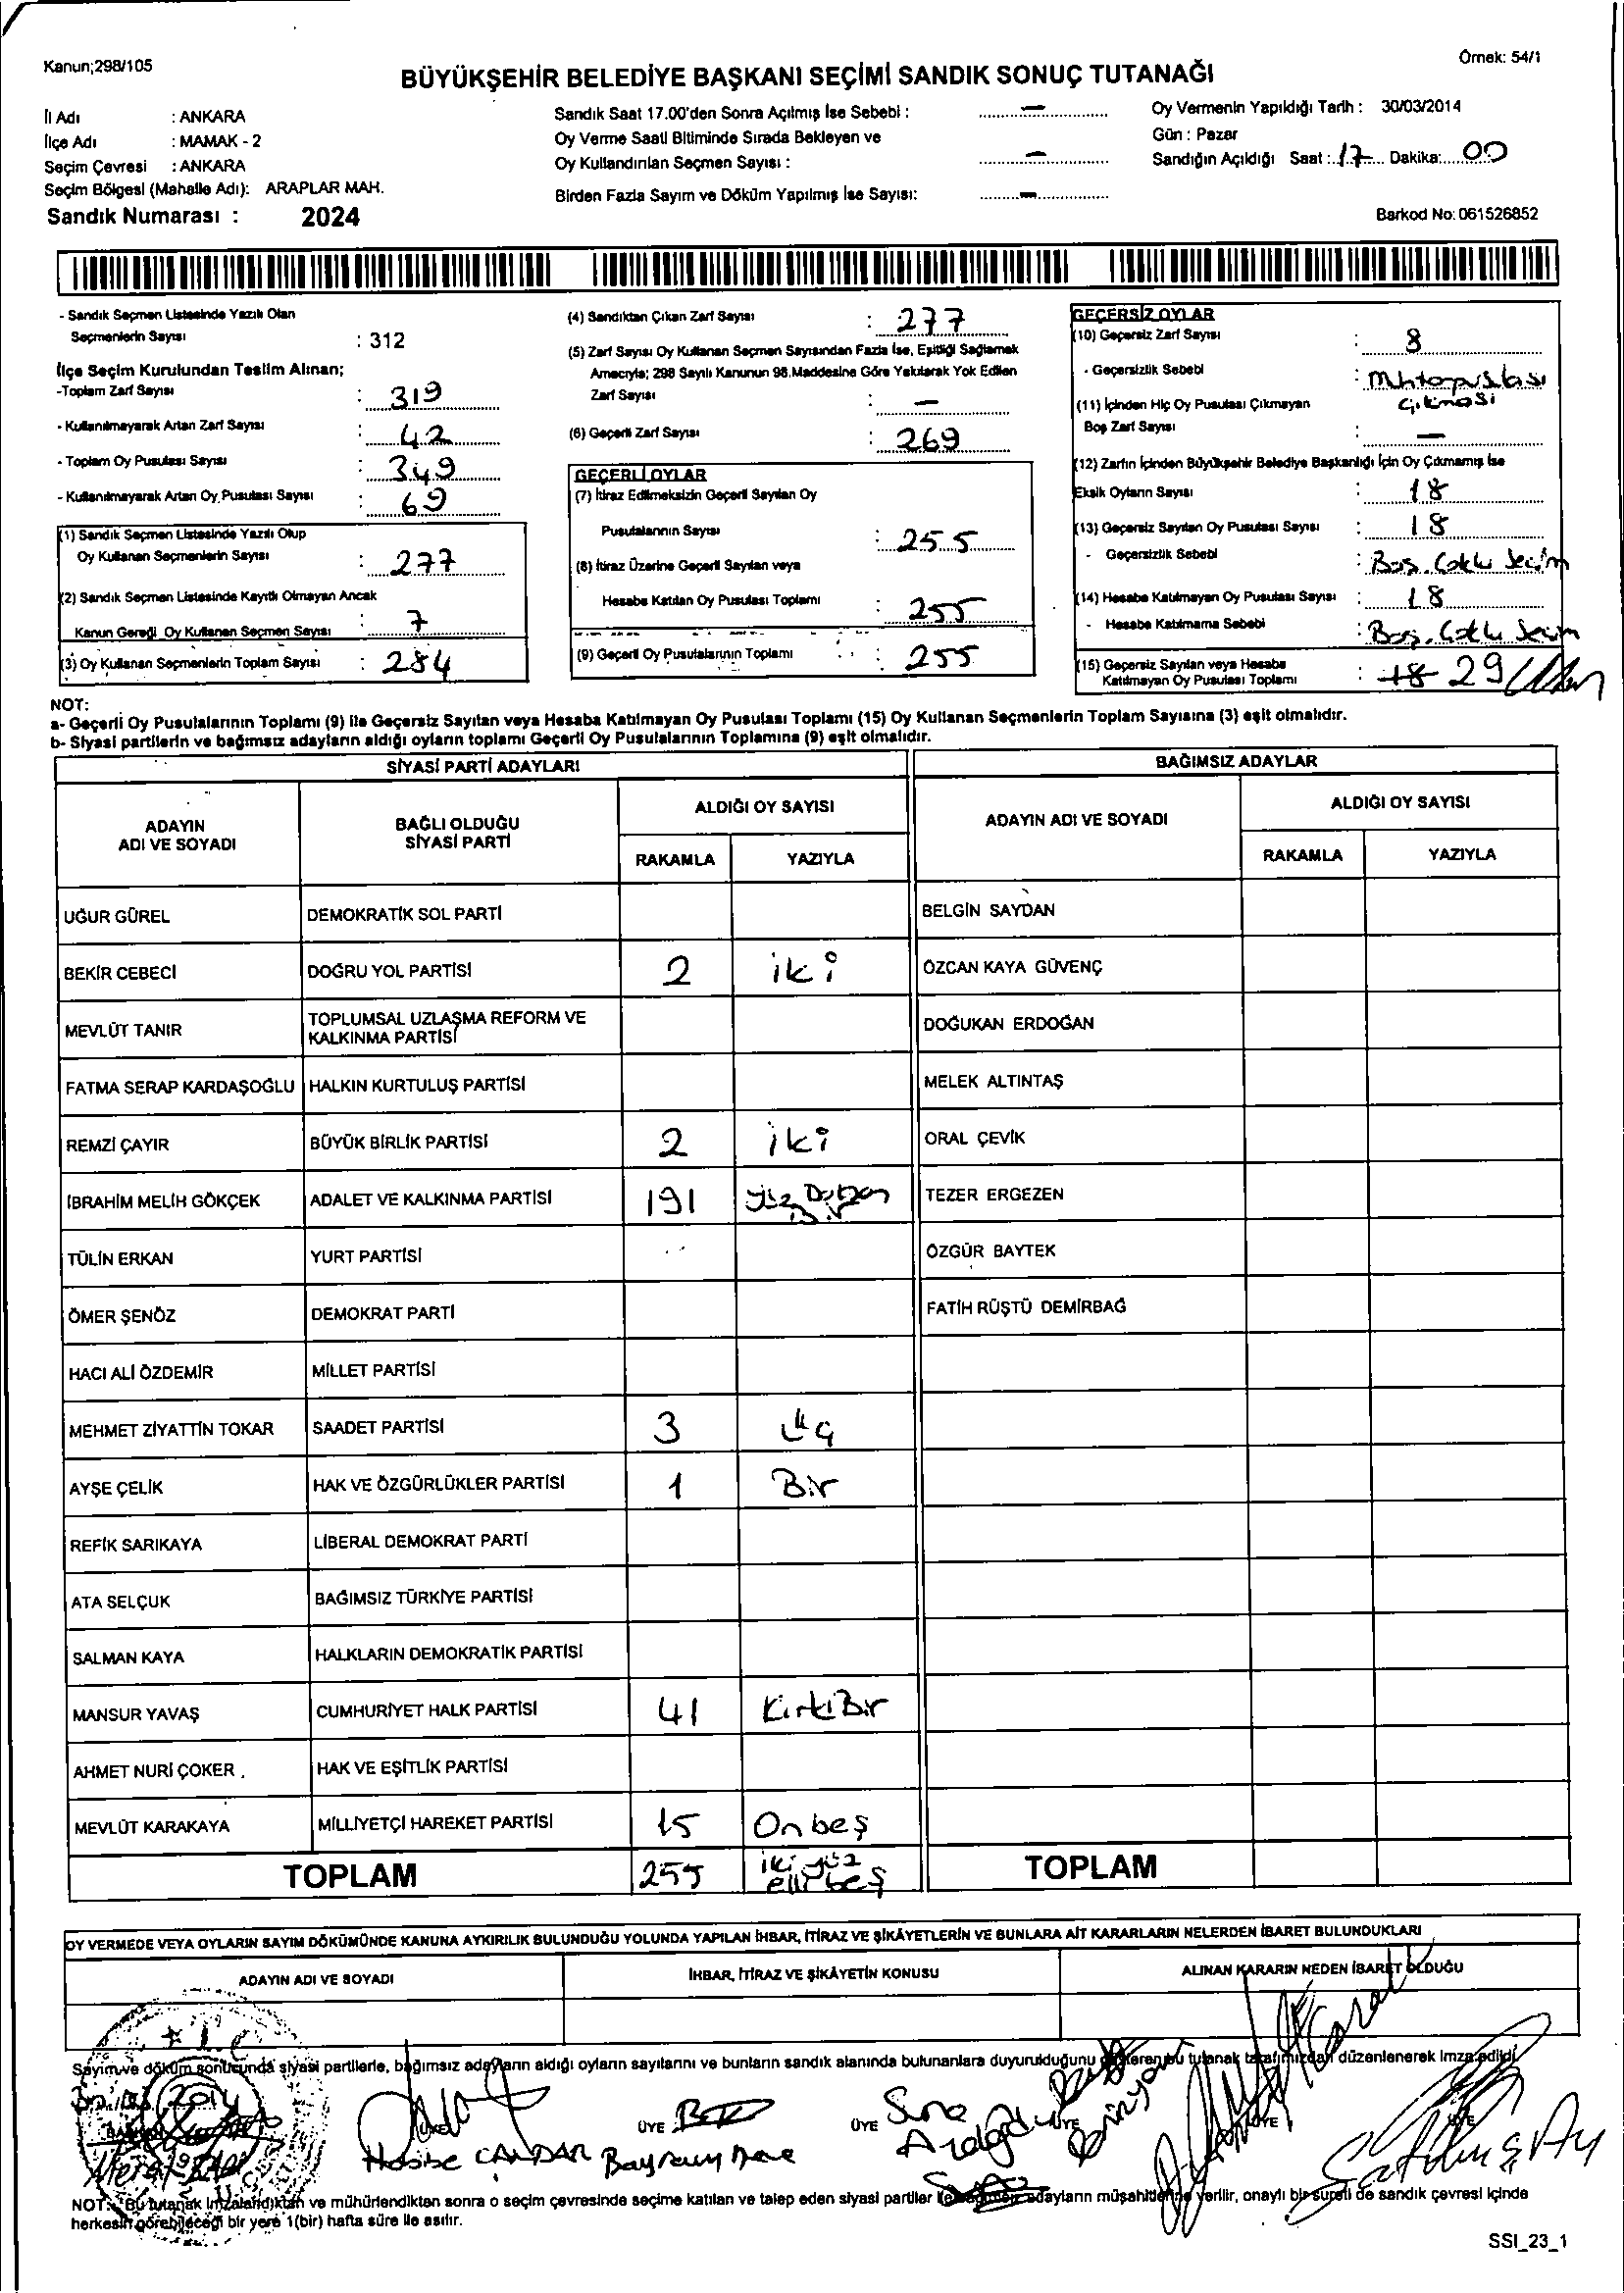 Kanun;298/105
Örnek: 54/1
BÜYÜKŞEHİR BELEDİYE BAŞKANI SEÇİMİ SANDIK SONUÇ TUTANAĞI
İl Adı : ANKARA
İlçe Adı : MAMAK - 2
Seçim Çevresi : ANKARA
Seçim Bölgesi (Mahalle Adı): ARAPLAR MAH.
Sandık Numarası : 2024
Sandık Saat 17.00'den Sonra Açılmış İse Sebebi : —
Oy Verme Saati Bitiminde Sırada Bekleyen ve
Oy Kullandırılan Seçmen Sayısı : —
Birden Fazla Sayım ve Döküm Yapılmış İse Sayısı: —
Oy Vermenin Yapıldığı Tarih : 30/03/2014
Gün : Pazar
Sandığın Açıldığı Saat : 17 Dakika: 00
Barkod No: 061526852
- Sandık Seçmen Listesinde Yazılı Olan
Seçmenlerin Sayısı : 312
İlçe Seçim Kurulundan Teslim Alınan;
-Toplam Zarf Sayısı : 319
- Kullanılmayarak Artan Zarf Sayısı : 42
- Toplam Oy Pusulası Sayısı : 349
- Kullanılmayarak Artan Oy Pusulası Sayısı : 69
(1) Sandık Seçmen Listesinde Yazılı Olup
Oy Kullanan Seçmenlerin Sayısı : 277
(2) Sandık Seçmen Listesinde Kayıtlı Olmayan Ancak
Kanun Gereği Oy Kullanan Seçmen Sayısı : 7
(3) Oy Kullanan Seçmenlerin Toplam Sayısı : 284
(4) Sandıktan Çıkan Zarf Sayısı : 277
(5) Zarf Sayısı Oy Kullanan Seçmen Sayısından Fazla İse, Eşitliği Sağlamak
Amacıyla; 298 Sayılı Kanunun 98.Maddesine Göre Yakılarak Yok Edilen
Zarf Sayısı : —
(6) Geçerli Zarf Sayısı : 269
GEÇERLİ OYLAR
(7) İtiraz Edilmeksizin Geçerli Sayılan Oy
Pusulalarının Sayısı : 255
(8) İtiraz Üzerine Geçerli Sayılan veya
Hesaba Katılan Oy Pusulası Toplamı : 255
(9) Geçerli Oy Pusulalarının Toplamı : 255
GEÇERSİZ OYLAR
(10) Geçersiz Zarf Sayısı : 8
- Geçersizlik Sebebi :
Çıkması
(11) İçinden Hiç Oy Pusulası Çıkmayan
Boş Zarf Sayısı : —
(12) Zarfın İçinden Büyükşehir Belediye Başkanlığı İçin Oy Çıkmamış İse
Eksik Oyların Sayısı : 18
(13) Geçersiz Sayılan Oy Pusulası Sayısı : 18
- Geçersizlik Sebebi : Boş. Çoklu Seçim
(14) Hesaba Katılmayan Oy Pusulası Sayısı : 18
- Hesaba Katılmama Sebebi : Boş. Çoklu Seçim
(15) Geçersiz Sayılan veya Hesaba
Katılmayan Oy Pusulası Toplamı : 18 29
NOT:
a- Geçerli Oy Pusulalarının Toplamı (9) ile Geçersiz Sayılan veya Hesaba Katılmayan Oy Pusulası Toplamı (15) Oy Kullanan Seçmenlerin Toplam Sayısına (3) eşit olmalıdır.
b- Siyasi partilerin ve bağımsız adayların aldığı oyların toplamı Geçerli Oy Pusulalarının Toplamına (9) eşit olmalıdır.
SİYASİ PARTİ ADAYLARI BAĞIMSIZ ADAYLAR
ADAYIN ADI VE SOYADI BAĞLI OLDUĞU SİYASİ PARTİ ALDIĞI OY SAYISI ADAYIN ADI VE SOYADI ALDIĞI OY SAYISI
RAKAMLA YAZIYLA RAKAMLA YAZIYLA
UĞUR GÜREL DEMOKRATİK SOL PARTİ BELGİN SAYDAN
BEKİR CEBECİ DOĞRU YOL PARTİSİ 2 iki ÖZCAN KAYA GÜVENÇ
MEVLÜT TANIR TOPLUMSAL UZLAŞMA REFORM VE KALKINMA PARTİSİ DOĞUKAN ERDOĞAN
FATMA SERAP KARDAŞOĞLU HALKIN KURTULUŞ PARTİSİ MELEK ALTINTAŞ
REMZİ ÇAYIR BÜYÜK BİRLİK PARTİSİ 2 iki ORAL ÇEVİK
İBRAHİM MELİH GÖKÇEK ADALET VE KALKINMA PARTİSİ 191 Yüz Doksan Bir TEZER ERGEZEN
TÜLİN ERKAN YURT PARTİSİ ÖZGÜR BAYTEK
ÖMER ŞENÖZ DEMOKRAT PARTİ FATİH RÜŞTÜ DEMİRBAĞ
HACI ALİ ÖZDEMİR MİLLET PARTİSİ
MEHMET ZİYATTİN TOKAR SAADET PARTİSİ 3 üç
AYŞE ÇELİK HAK VE ÖZGÜRLÜKLER PARTİSİ 1 Bir
REFİK SARIKAYA LİBERAL DEMOKRAT PARTİ
ATA SELÇUK BAĞIMSIZ TÜRKİYE PARTİSİ
SALMAN KAYA HALKLARIN DEMOKRATİK PARTİSİ
MANSUR YAVAŞ CUMHURİYET HALK PARTİSİ 41 KırkBir
AHMET NURİ ÇOKER HAK VE EŞİTLİK PARTİSİ
MEVLÜT KARAKAYA MİLLİYETÇİ HAREKET PARTİSİ 15 Onbeş
TOPLAM 255 iki yüz elli beş TOPLAM
OY VERMEDE VEYA OYLARIN SAYIM DÖKÜMÜNDE KANUNA AYKIRILIK BULUNDUĞU YOLUNDA YAPILAN İHBAR, İTİRAZ VE ŞİKÂYETLERİN VE BUNLARA AİT KARARLARIN NELERDEN İBARET BULUNDUKLARI
ADAYIN ADI VE SOYADI İHBAR, İTİRAZ VE ŞİKÂYETİN KONUSU ALINAN KARARIN NEDEN İBARET OLDUĞU
Sayım ve döküm sonucunda siyasi partilerle, bağımsız adayların aldığı oyların sayılarını ve bunların sandık alanında bulunanlara duyurulduğunu gösteren bu tutanak tarafımızdan düzenlenerek imza edildi.
ÜYE ÜYE ÜYE ÜYE ÜYE
Habibe CANDAR Bayram
NOT: Bu tutanak imzalandıktan ve mühürlendikten sonra o seçim çevresinde seçime katılan ve talep eden siyasi partiler ile bağımsız adayların müşahitlerine verilir, onaylı bir sureti de sandık çevresi içinde
herkesin görebileceği bir yere 1(bir) hafta süre ile asılır.
SSI_23_1